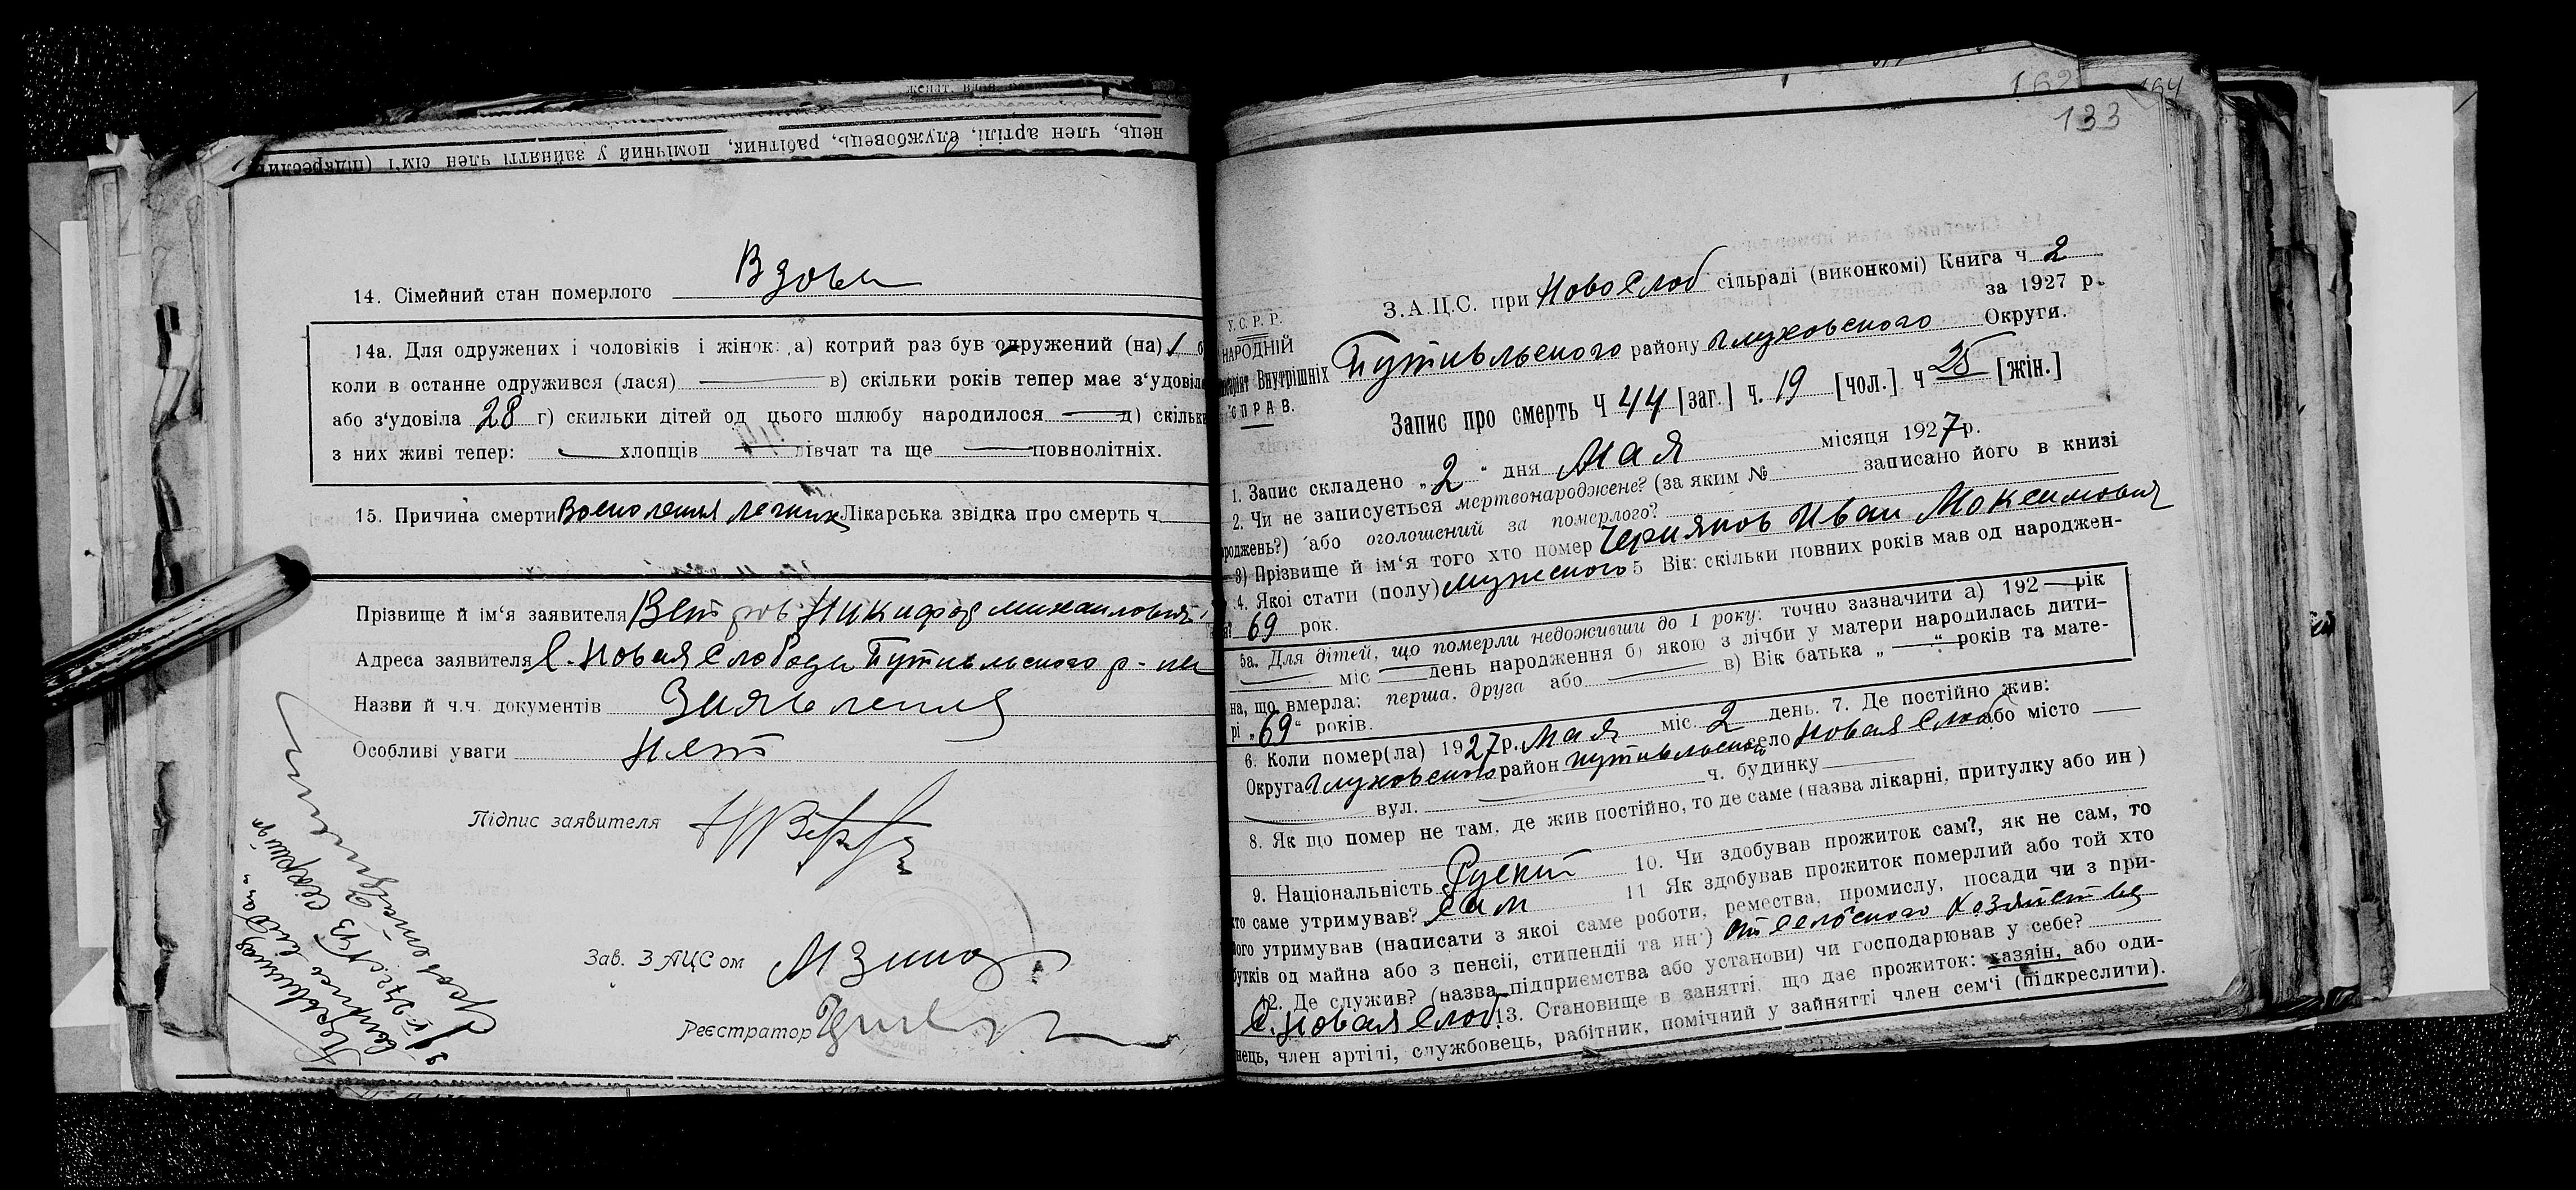 нець, член артілі, службовець, рабітник, помічний у зайнятті член сім'ї (підкреслити
14. Сімейний стан померлого Вдова
14а. Для одружених і чоловіків і жінок: а) котрий раз був одружений (на) 1
коли в останне одружився (лася) в) скільки років тепер має з'удовіле
або з'удовіла 28 г) скильки дітей од цього шлюбу народилося д) скільки
з них живі тепер: хлопців дівчат та ще повнолітніх.
15. Причина смерти Восполения легких Лікарська звідка про смерть ч.
Прізвище й ім'я заявителя Ветров Никифор михайлович
Адреса заявителя С. Новая Слобода Путивльского р-на
Назви й ч.ч. документів Заявления
Особливі уваги Нет
Підпис заявителя
Зав. ЗАЦСом
Реєстратор
162 164
133
З.А.Ц.С. при НовоСлоб сільраді (виконкомі) Книга ч 2
за 1927 р.
У.С.Р.Р.
НАРОДНІЙ
Внутрішніх
СПРАВ.
Путивльского району Глуховского Округи.
Запис про смерть Ч 44 [заг.] ч. 19 [чол.] ч 25 [жін.]
1. Запис складено „2“ дня Мая місяця 1927 р.
2. Чи не записується мертвонароджене? (за яким № записано його в книзі
роджень?) або оголошений за померлого?
3) Прізвище й ім'я того хто помер Черняков Иван Максимович
4. Якої стати (полу) мужского 5 Вік: скільки повних років мав од народжен-
69 рок.
5а. Для дітей, що померли недоживши до 1 року: точно зазначити а) 192 рік
міс день народження б) якою з лічби у матери народилась дити-
на, що вмерла: перша, друга або в) Вік батька „ “ років та мате-
рі „69“ років.
6. Коли помер(ла) 1927 р. Мая міс. 2 день. 7. Де постійно жив:
Округа Глуховского район путивльского село Новая Слоб або місто
вул. ч. будинку
8. Як що помер не там, де жив постійно, то де саме (назва лікарні, притулку або ин)
9. Національність Руский 10. Чи здобував прожиток сам?, як не сам, то
хто саме утримував? сам 11 Як здобував прожиток померлий або той хто
його утримував (написати з якої саме роботи, ремества, промислу, посади чи з при-
бутків од майна або з пенсії, стипендії та ин.) от селского хозяйства
12. Де служив? (назва підприємства або установи) чи господарював у себе?
С. Новая Слоб. 13. Становище в занятті, що дає прожиток: хазяін, або оди-
нець, член артілі, службовець, рабітник, помічний у зайнятті член сем'ї (підкреслити).